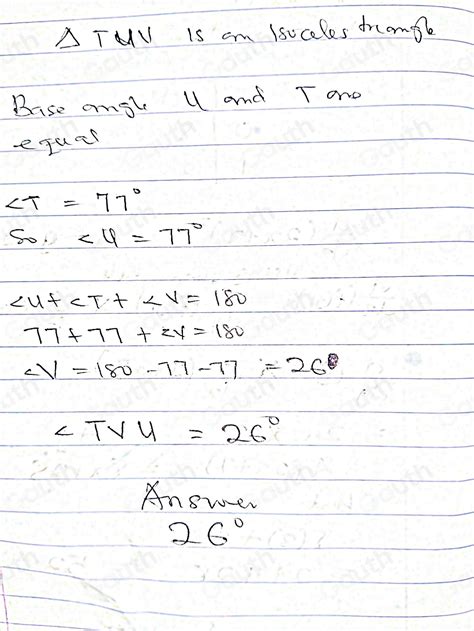 △ TUV is an isoceles triangle
Base angle U and T are
equal
<T = 77°
So. <U = 77°
<U + <T + <V = 180
77 + 77 + <V = 180
<V = 180 - 77 - 77 = 26°
< TVU = 26°
Answer
26°